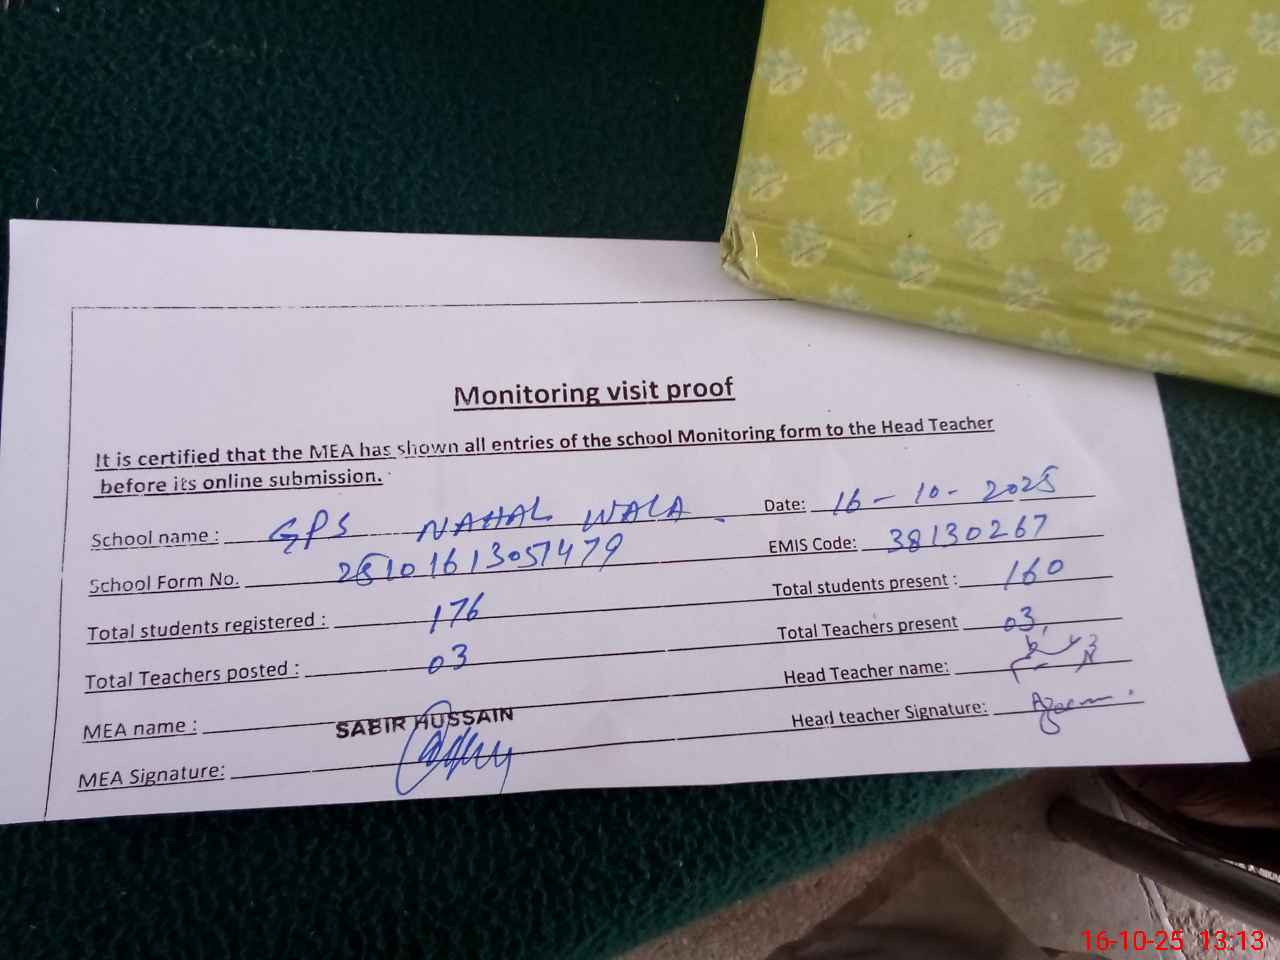 Monitoring visit proof
It is certified that the MEA has shown all entries of the school Monitoring form to the Head Teacher
before its online submission.
School name : GPS NAHAL WALA. Date: 16-10-2025
School Form No. 25101613051479 EMIS Code: 38130267
Total students registered : 176 Total students present : 160
Total Teachers posted : 03 Total Teachers present 03
MEA name : SABIR HUSSAIN Head Teacher name:
MEA Signature: Head teacher Signature:
16-10-25 13:13